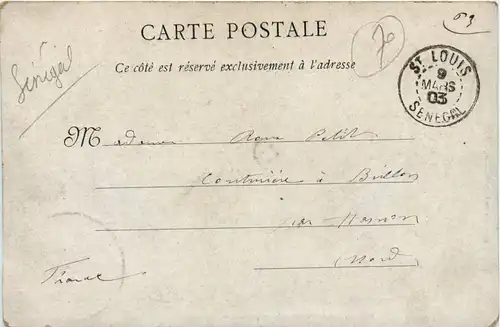 CARTE POSTALE
Ce côté est réservé exclusivement à l'adresse
Sénégal
70
ST. LOUIS
9
MARS
03
SENEGAL
Madame Petit
Couturière à Brillon
par Hasnon
Nord
France